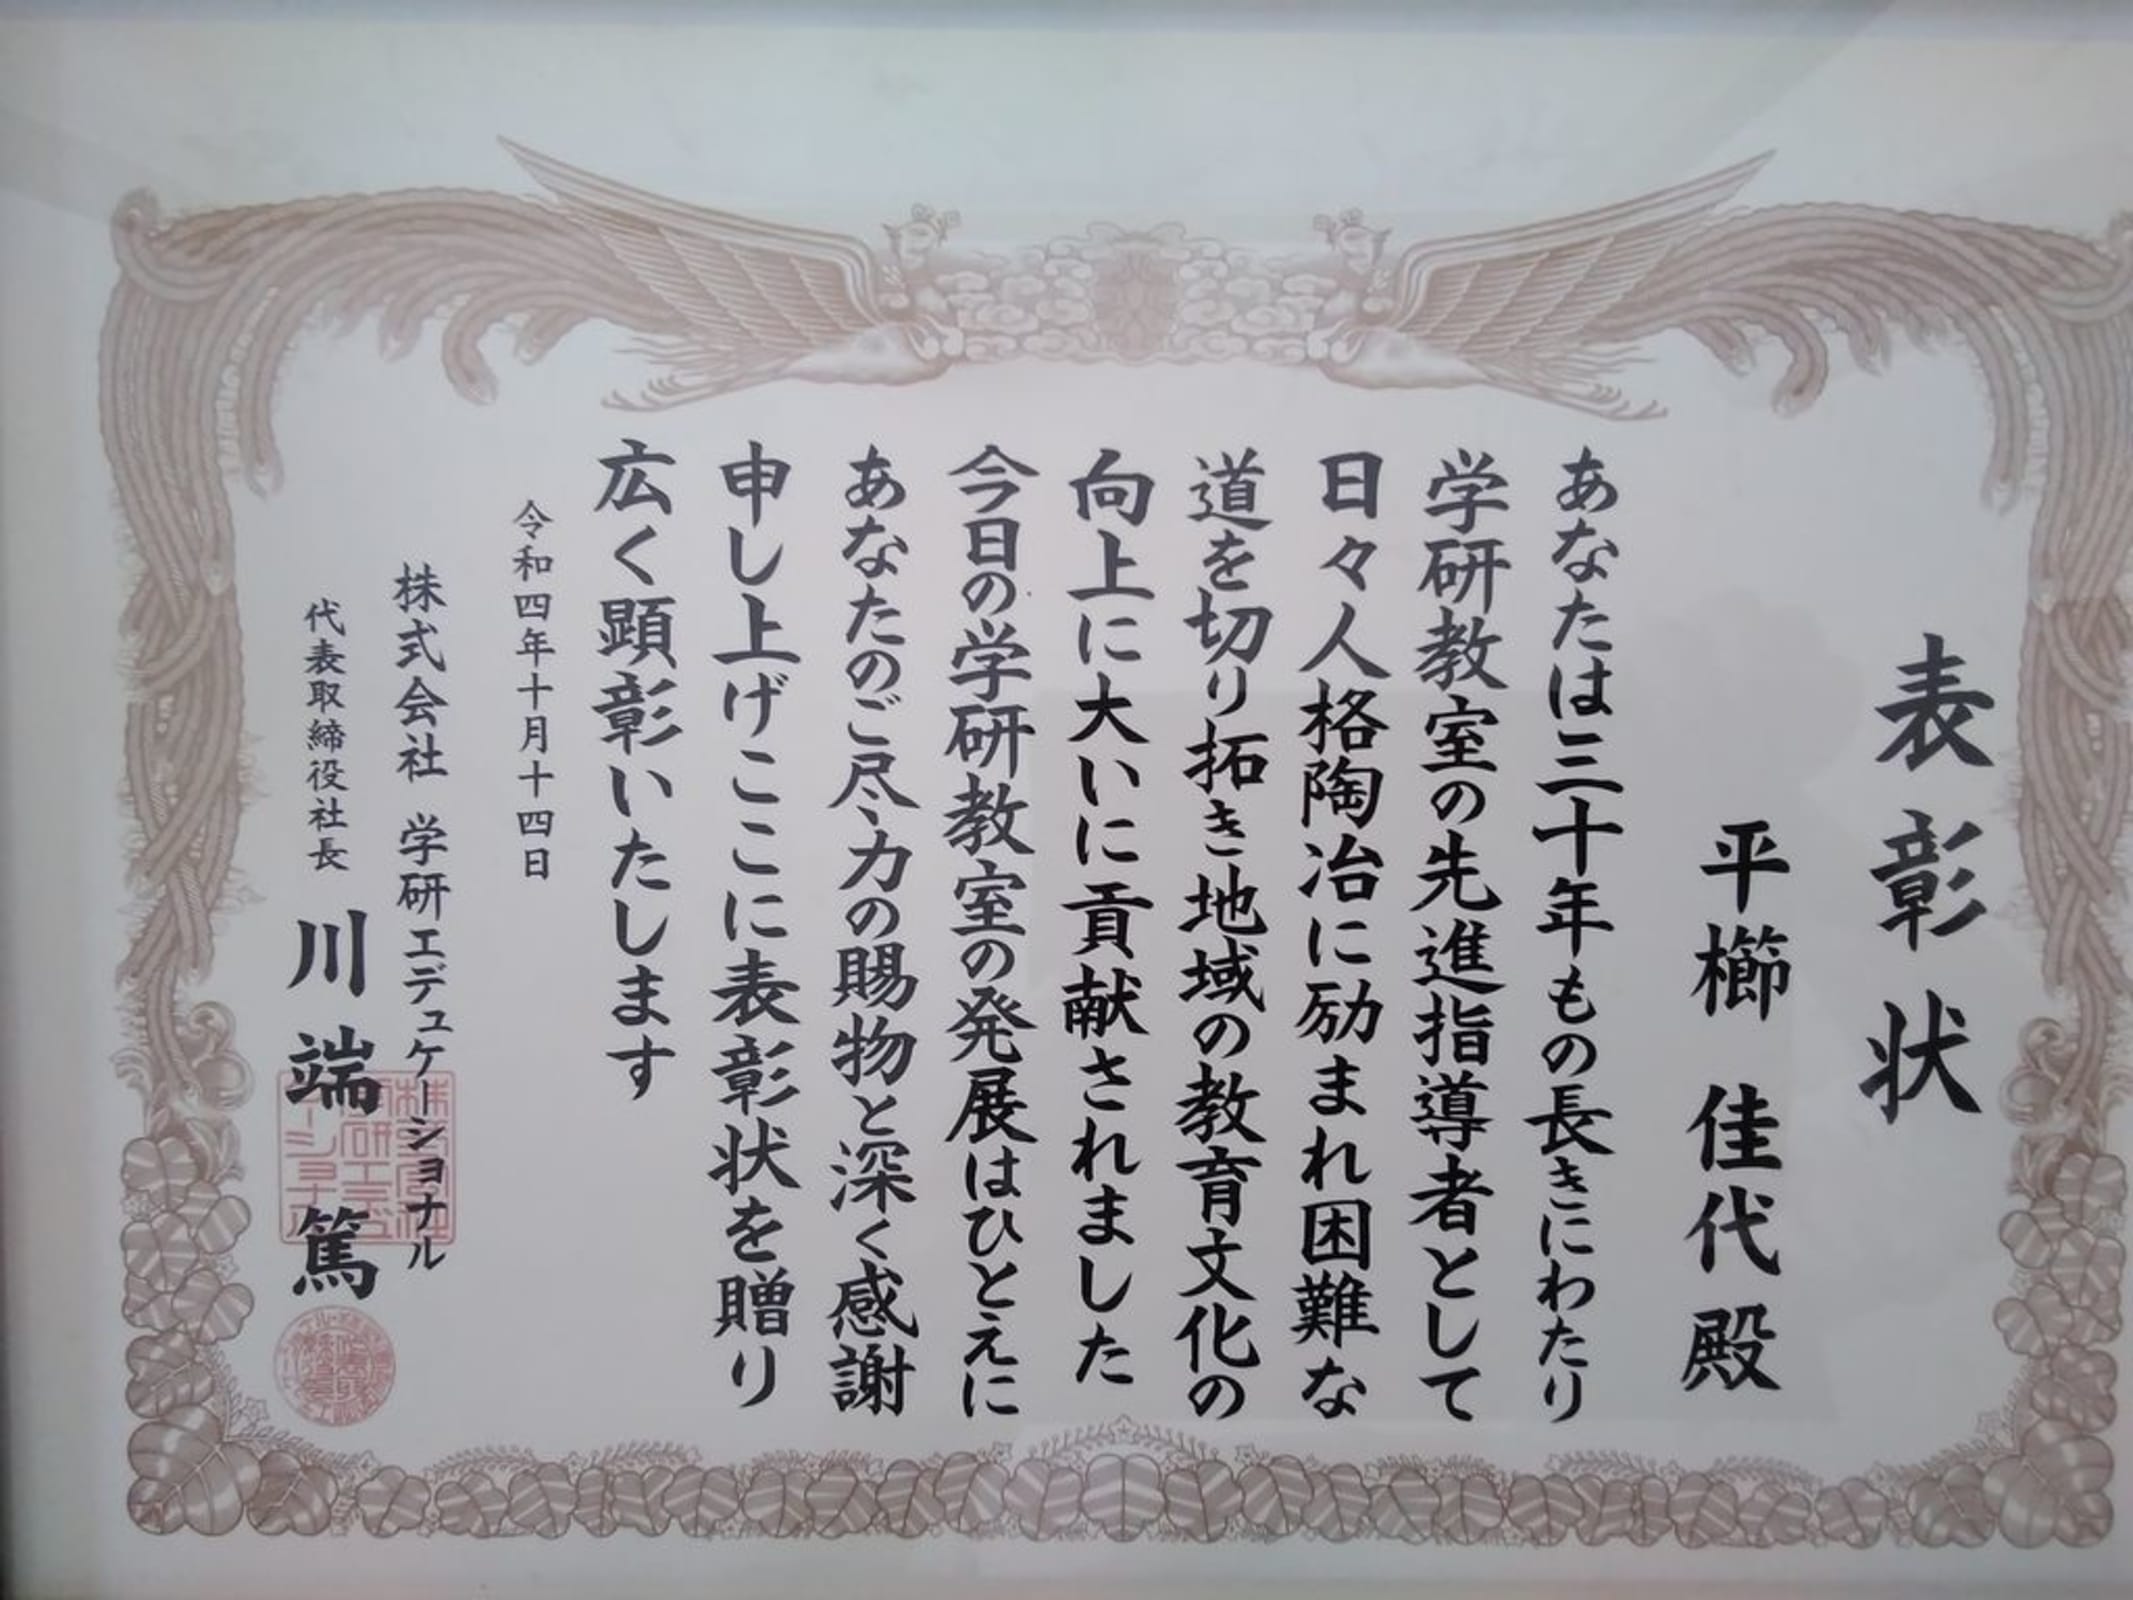 表彰状
平櫛 佳代 殿
あなたは三十年もの長きにわたり
学研教室の先進指導者として
日々人格陶冶に励まれ困難な
道を切り拓き地域の教育文化の
向上に大いに貢献されました
今日の学研教室の発展はひとえに
あなたのご尽力の賜物と深く感謝
申し上げここに表彰状を贈り
広く顕彰いたします
令和四年十月十四日
株式会社 学研エデュケーショナル
代表取締役社長 川端 篤